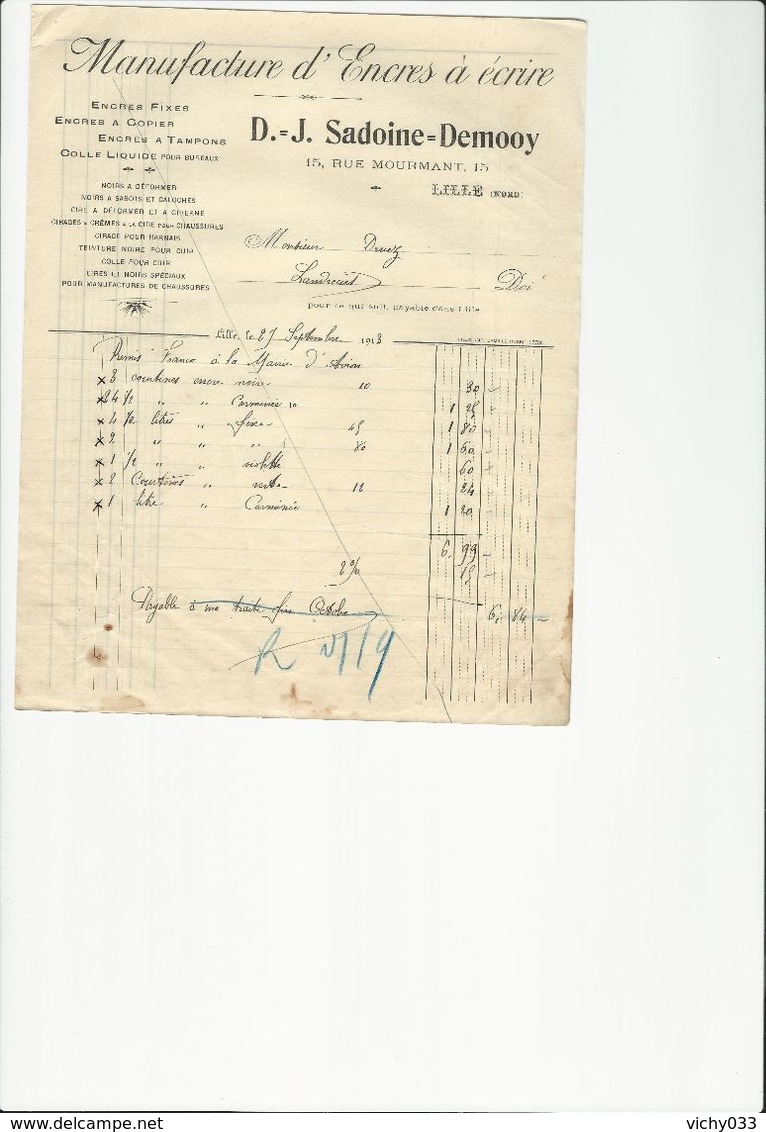 Manufacture d'Encres à écrire
ENCRES FIXES
ENCRES A COPIER
ENCRES A TAMPONS
COLLE LIQUIDE POUR BUREAUX
D.=J. Sadoine=Demooy
15, RUE MOURMANT, 15
LILLE (NORD)
NOIRS A DÉFORMER
NOIRS A SABOTS ET GALOCHES
CIRE A DÉFORMER ET A
CIRAGES & CRÈMES A LA CIRE POUR CHAUSSURES
CIRAGE POUR HARNAIS
TEINTURE NOIRE POUR CUIR
COLLE POUR CUIR
CIRES ET NOIRS SPÉCIAUX
POUR MANUFACTURES DE CHAUSSURES
Monsieur Druez
Doit
pour ce qui suit, payable dans Lille
Lille, le 27 Septembre 1913
Remis Franco à la Mairie d'Avion
x 3 encre noire 10 30
x 24 1/2 " " Carminée 10 1 25
x 4 1/2 litres " fixe 45 1 80
x 2 " " " 80 1 60
x 1 1/2 " " violette 60
x 2 " verte 12 24
x 1 litre " Carminée 1 20
6, 99
2% 15
6, 84
Payable à ma traite fin Octobre
R
vichy033